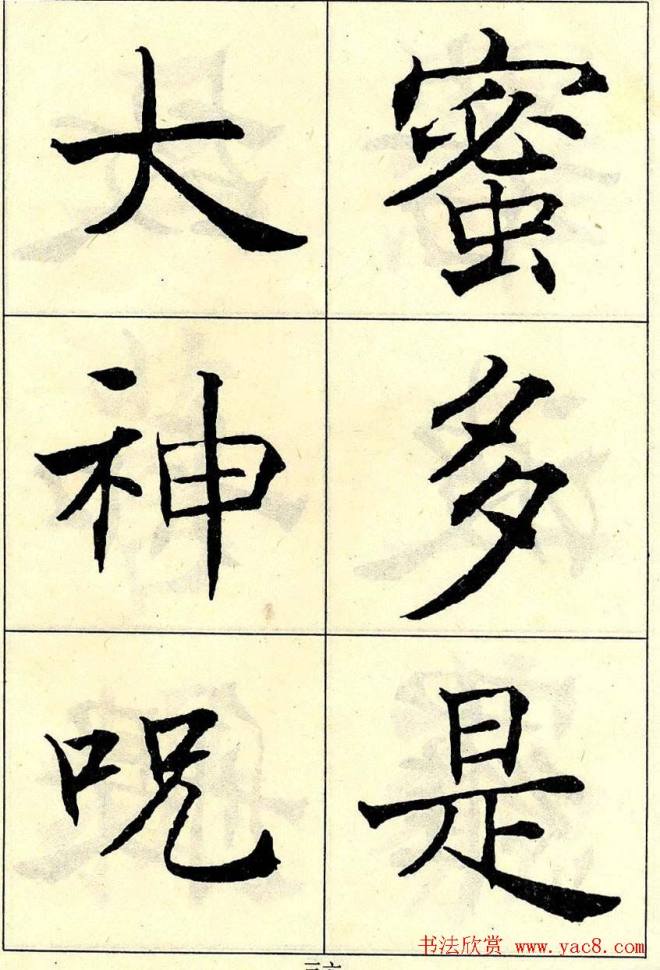 蜜多是
大神咒
书法欣赏 www.yac8.com
三六